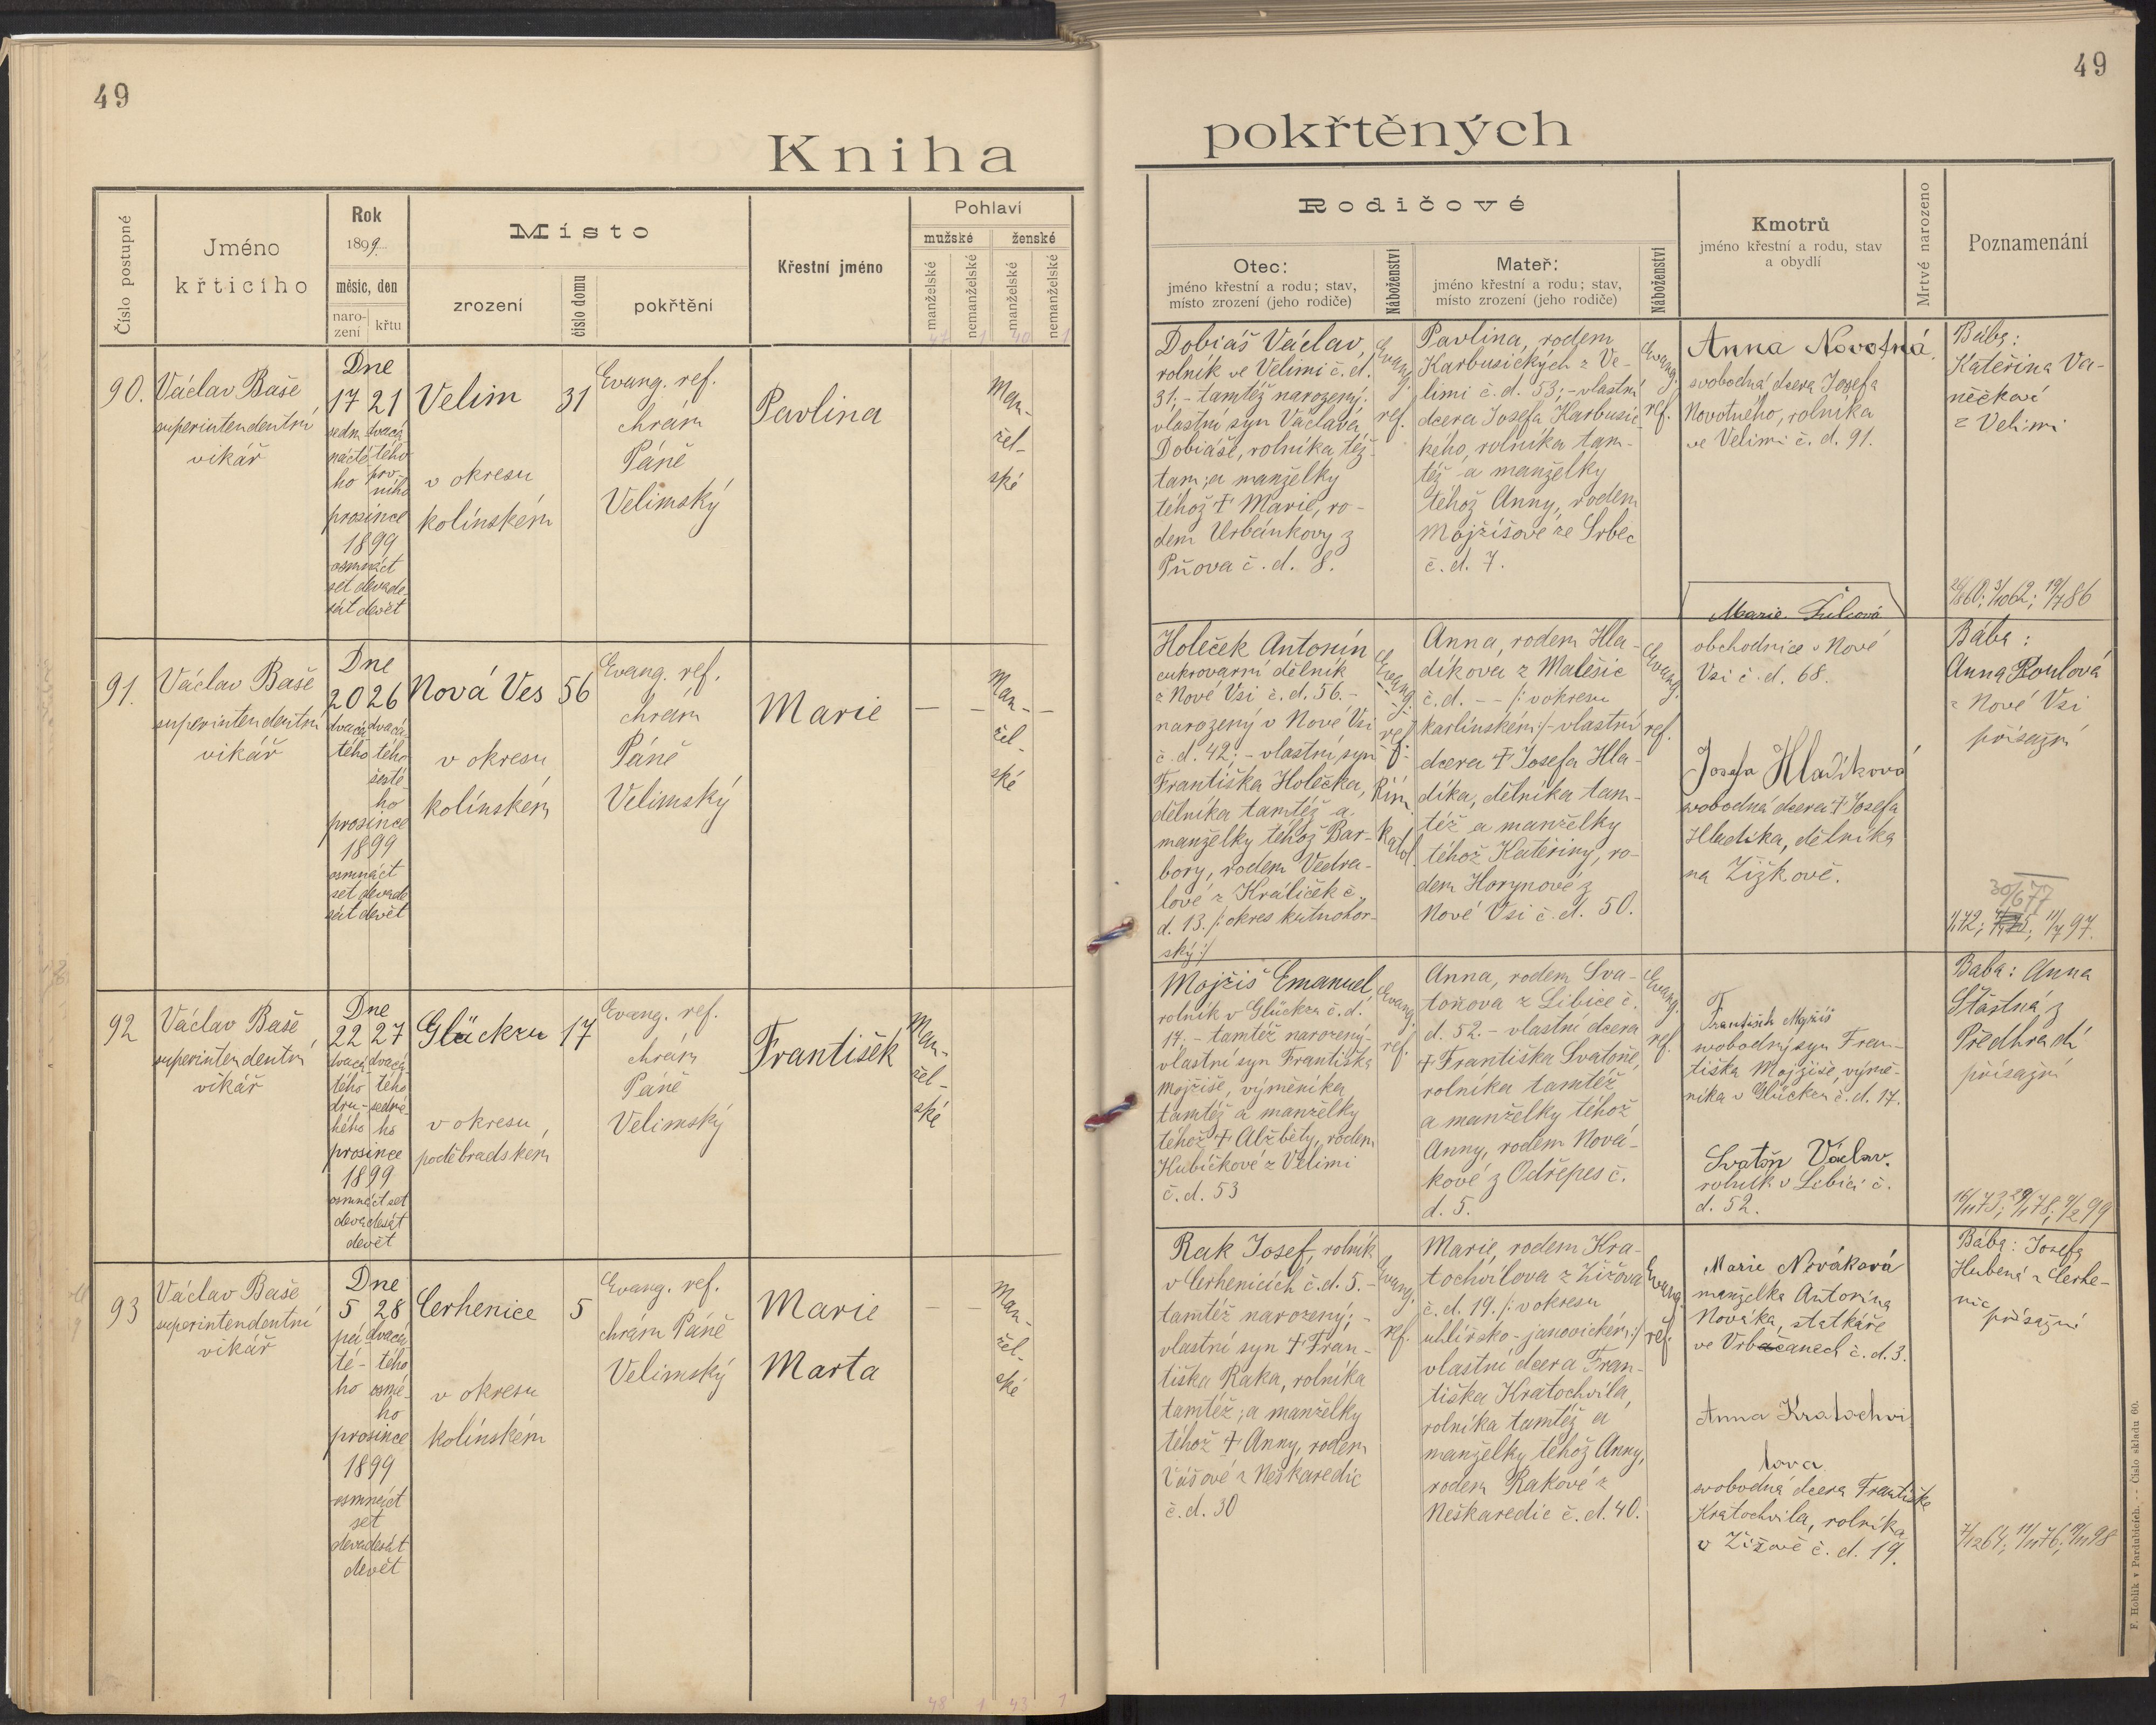 49
Kniha
Číslo postupné
Jméno
křticího
Rok
1899
měsíc, den
naro-
zení
křtu
Místo
zrození
číslo domu
pokřtění
Křestní jméno
Pohlaví
mužské
ženské
manželské
nemanželské
manželské
nemanželské
47 1 40 1
90.
Václav Baše
superintendentní
vikář
Dne
17 21
sedm dvacá-
nácté- tého
ho prv-
ního
prosince
1899
osmnáct
set devade-
sát devět
Velim
v okresu
kolínském
31
Evang. ref.
chrám
Páně
Velimský
Pavlina
Man-
žel-
ské
91.
Václav Baše
superintendentní
vikář
Dne
20 26
dvacá- dvacá-
tého tého
šesté-
ho
prosince
1899
osmnáct
set devade
sát devět
Nová Ves
v okresu
kolínském
56
Evang. ref.
chrám
Páně
Velimský
Marie
— —
Man-
žel-
ské
—
92
Václav Baše
superintendentní
vikář
Dne
22 27
dvacá- dvacá-
tého tého
dru- sedmé-
hého ho
prosince
1899
osmnáct set
devadesát
devět
Glückzu
v okresu
poděbradském
17
Evang. ref.
chrám
Páně
Velimský
František
Man-
žel-
ské
93
Václav Baše
superintendentní
vikář
Dne
5 28
pá- dvacá-
té- tého
ho osmé-
ho
prosince
1899
osmnáct
set
devadesát
devět
Cerhenice
v okresu
kolínském
5
Evang. ref.
chrám Páně
Velimský
Marie
Marta
— —
Man-
žel-
ské
48 1 43 1
49
pokřtěných
Rodičové
Otec:
jméno křestní a rodu; stav,
místo zrození (jeho rodiče)
Náboženství
Mateř:
jméno křestní a rodu; stav,
místo zrození (jeho rodiče)
Náboženství
Kmotrů
jméno křestní a rodu, stav
a obydlí
Mrtvé narozeno
Poznamenání
Dobiáš Václav,
rolník ve Velimi č. d.
31, - tamtéž narozený;
vlastní syn Václava
Dobiáše, rolníka též
tam; a manželky
téhož † Marie, ro-
dem Urbánkovy z
Pňova č. d. 8.
Evang.
ref.
Pavlina, rodem
Karbusických z Ve-
limi č. d. 53; - vlastní
dcera Josefa Karbusic-
kého, rolníka tam-
též a manželky
téhož Anny, rodem
Mojžíšové ze Srbec
č. d. 7.
Evang.
ref.
Anna Novotná,
svobodná dcera Josefa
Novotného, rolníka
ve Velimi č. d. 91.
Bába:
Kateřina Va-
něčková
z Velimi
Holeček Antonín
cukrovarní dělník
z Nové Vsi č. d. 56. -
narozený v Nové Vsi
č. d. 42; - vlastní syn
Františka Holečka,
dělníka tamtéž a
manželky téhož Bar-
bory, rodem Vedra-
lové z Králiček č.
d. 13. /: okres kutnohor-
ský :/
Evang.
ref.
Řím.
katol.
Anna, rodem Hla-
díkova z Malešic
č. d. - - /: v okresu
karlínském :/ - vlastní
dcera † Josefa Hla-
díka, dělníka tam-
též a manželky
téhož Kateřiny, ro-
dem Horynové z
Nové Vsi č. d. 50.
Evang.
ref.
Marie Fulcová
obchodnice v Nové
Vsi č. d. 68.
Josefa Hladíková
svobodná dcera † Josefa
Hladíka, dělníka
na Žižkově.
Bába:
Anna Koulová
z Nové Vsi
přísažní
30/6 77
Mojžíš Emanuel,
rolník v Glückzu č. d.
17. - tamtéž narozený -
vlastní syn Františka
Mojžíše, výměníka
tamtéž a manželky
téhož † Alžběty, rodem
Kubíčkové z Velimi
č. d. 53
Evang.
ref.
Anna, rodem Sva-
toňova z Libice č.
d. 52. - vlastní dcera
† Františka Svatoně,
rolníka tamtéž
a manželky téhož
Anny, rodem Nová-
kové z Odřepes č.
d. 5.
Evang.
ref.
František Mojžíš
svobodný syn Fran-
tiška Mojžíše, výmě-
níka v Glückzu č. d. 17.
Svatoň Václav.
rolník v Libici č.
d. 52.
Bába: Anna
Šťastná z
Předhradí
přísažní
Rak Josef, rolník
v Cerhenicích č. d. 5. -
tamtéž narozený; -
vlastní syn † Fran-
tiška Raka, rolníka
tamtéž; a manželky
téhož † Anny, rodem
Vášové z Neškaredic
č. d. 30
Evang.
ref.
Marie, rodem Kra-
tochvílova z Žižova
č. d. 19. /: v okresu
uhlířsko-janovickém :/
vlastní dcera Fran-
tiška Kratochvíla,
rolníka tamtéž a
manželky téhož Anny,
rodem Rakové z
Neškaredic č. d. 40.
Evang.
ref.
Marie Nováková
manželka Antonína
Nováka, statkáře
ve Vrbčanech č. d. 3.
Anna Kratochví
lova
svobodná dcera Františka
Kratochvíla, rolníka
v Žižově č. d. 19.
Bába: Josefa
Hubená z Cerhe-
nic přísažní
F. Hoblík v Pardubicích. -- Číslo skladu 60.